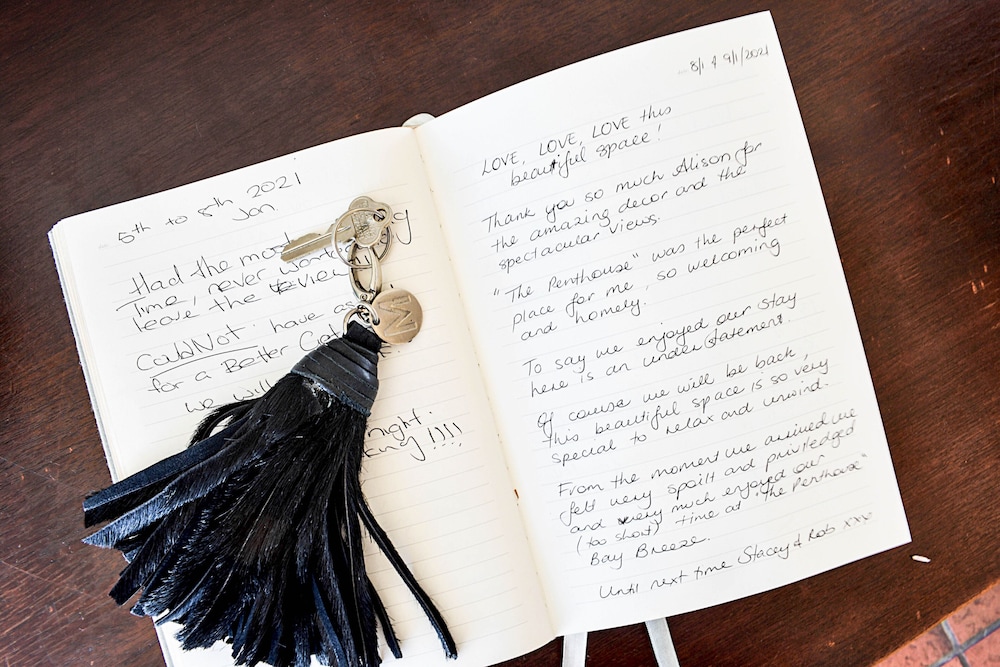 5th to 8th 2021
Jan
Had the mos
Time, never wan
leave the View
CouldNot have as
for a Better
we wil
night.
!!!!
M
8/1 & 9/1/2021
LOVE, LOVE, LOVE this
beautiful space!
Thank you so much Alison for
the amazing decor and the
spectacular views.
"The Penthouse" was the perfect
place for me, so welcoming
and homely.
To say we enjoyed our stay
here is an understatement.
Of course we will be back,
this beautiful space is so very
special to relax and unwind.
From the moment we arrived we
felt very spoilt and priviledged
and very much enjoyed our
(too short) time at "The Penthouse"
Bay Breeze.
Until next time Stacey & Rob xxx